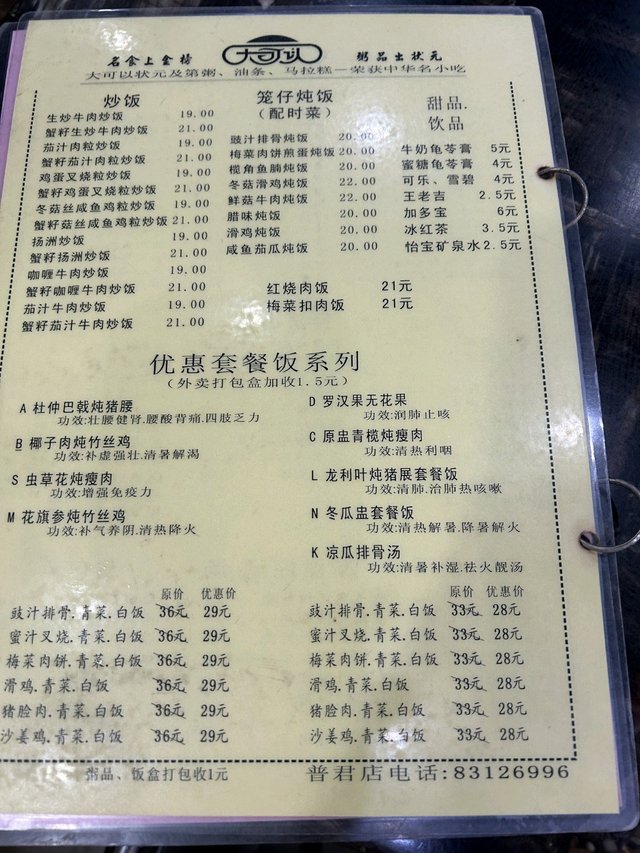 名食上金榜
大可以
粥品出状元
大可以状元及第粥、油条、马拉糕—荣获中华名小吃
炒饭
生炒牛肉炒饭 19.00
蟹籽生炒牛肉炒饭 21.00
茄汁肉粒炒饭 19.00
蟹籽茄汁肉粒炒饭 21.00
鸡蛋叉烧粒炒饭 19.00
蟹籽鸡蛋叉烧粒炒饭 21.00
冬菇丝咸鱼鸡粒炒饭 19.00
蟹籽菇丝咸鱼鸡粒炒饭 21.00
扬洲炒饭 19.00
蟹籽扬洲炒饭 21.00
咖喱牛肉炒饭 19.00
蟹籽咖喱牛肉炒饭 21.00
茄汁牛肉炒饭 19.00
蟹籽茄汁牛肉炒饭 21.00
笼仔炖饭
（配时菜）
豉汁排骨炖饭 20.00
梅菜肉饼煎蛋炖饭 20.00
榄角鱼腩炖饭 20.00
冬菇滑鸡炖饭 22.00
鲜菇牛肉炖饭 22.00
腊味炖饭 20.00
滑鸡炖饭 20.00
咸鱼茄瓜炖饭 20.00
红烧肉饭 21元
梅菜扣肉饭 21元
甜品.
饮品
牛奶龟苓膏 5元
蜜糖龟苓膏 4元
可乐、雪碧 4元
王老吉 2.5元
加多宝 6元
冰红茶 3.5元
怡宝矿泉水 2.5元
优惠套餐饭系列
（外卖打包盒加收1.5元）
A 杜仲巴戟炖猪腰
功效:壮腰健肾.腰酸背痛.四肢乏力
B 椰子肉炖竹丝鸡
功效:补虚强壮.清暑解渴
S 虫草花炖瘦肉
功效:增强免疫力
M 花旗参炖竹丝鸡
功效:补气养阴.清热降火
D 罗汉果无花果
功效:润肺止咳
C 原盅青榄炖瘦肉
功效:清热利咽
L 龙利叶炖猪展套餐饭
功效:清肺.治肺热咳嗽
N 冬瓜盅套餐饭
功效:清热解暑.降暑解火
K 凉瓜排骨汤
功效:清暑补湿.祛火靓汤
原价 优惠价
豉汁排骨.青菜.白饭 36元 29元
蜜汁叉烧.青菜.白饭 36元 29元
梅菜肉饼.青菜.白饭 36元 29元
滑鸡.青菜.白饭 36元 29元
猪脸肉.青菜.白饭 36元 29元
沙姜鸡.青菜.白饭 36元 29元
原价 优惠价
豉汁排骨.青菜.白饭 33元 28元
蜜汁叉烧.青菜.白饭 33元 28元
梅菜肉饼.青菜.白饭 33元 28元
滑鸡.青菜.白饭 33元 28元
猪脸肉.青菜.白饭 33元 28元
沙姜鸡.青菜.白饭 33元 28元
粥品、饭盒打包收1元
普君店电话:83126996